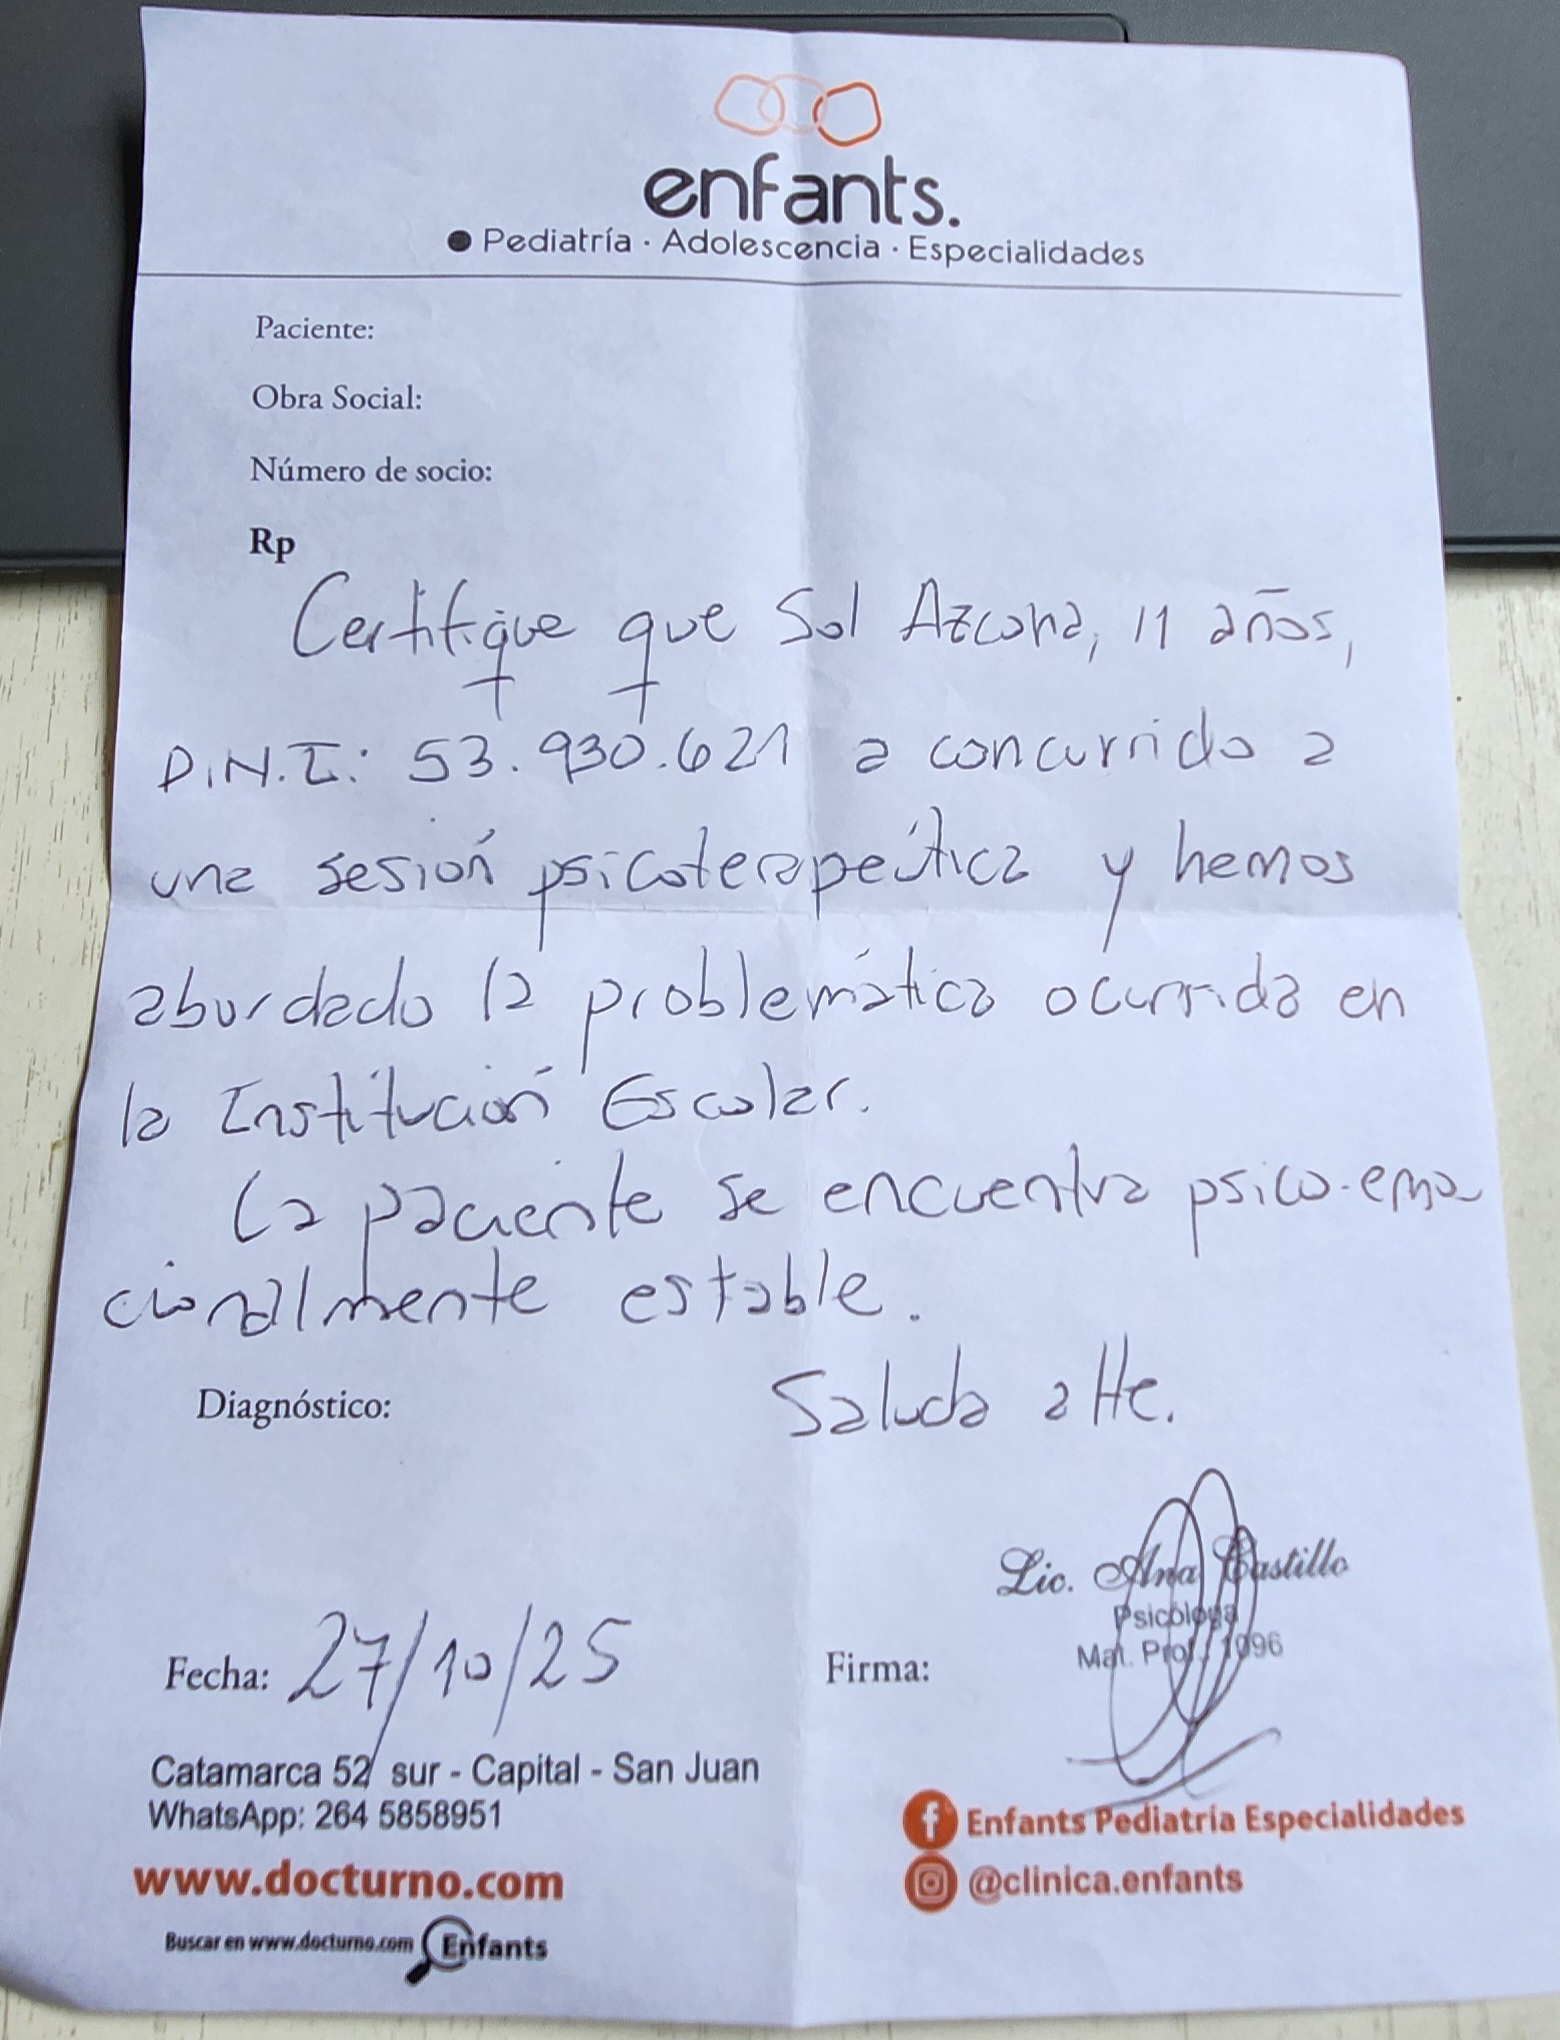 enfants.
Pediatría · Adolescencia · Especialidades
Paciente:
Obra Social:
Número de socio:
Rp
Certifique que Sol Azcona, 11 años,
D.N.I.: 53.930.621 a concurrido a
una sesión psicoterapeútica y hemos
abordado la problemática ocurrida en
la Institución Escolar.
La paciente se encuentra psico-emo
cionalmente estable.
Saluda atte.
Diagnóstico:
Lic. Ana Castillo
Psicóloga
Mat. Prof. 1096
Fecha: 27/10/25
Firma:
Catamarca 52 sur - Capital - San Juan
WhatsApp: 264 5858951
Enfants Pediatría Especialidades
www.docturno.com
@clinica.enfants
Buscar en www.docturno.com Enfants